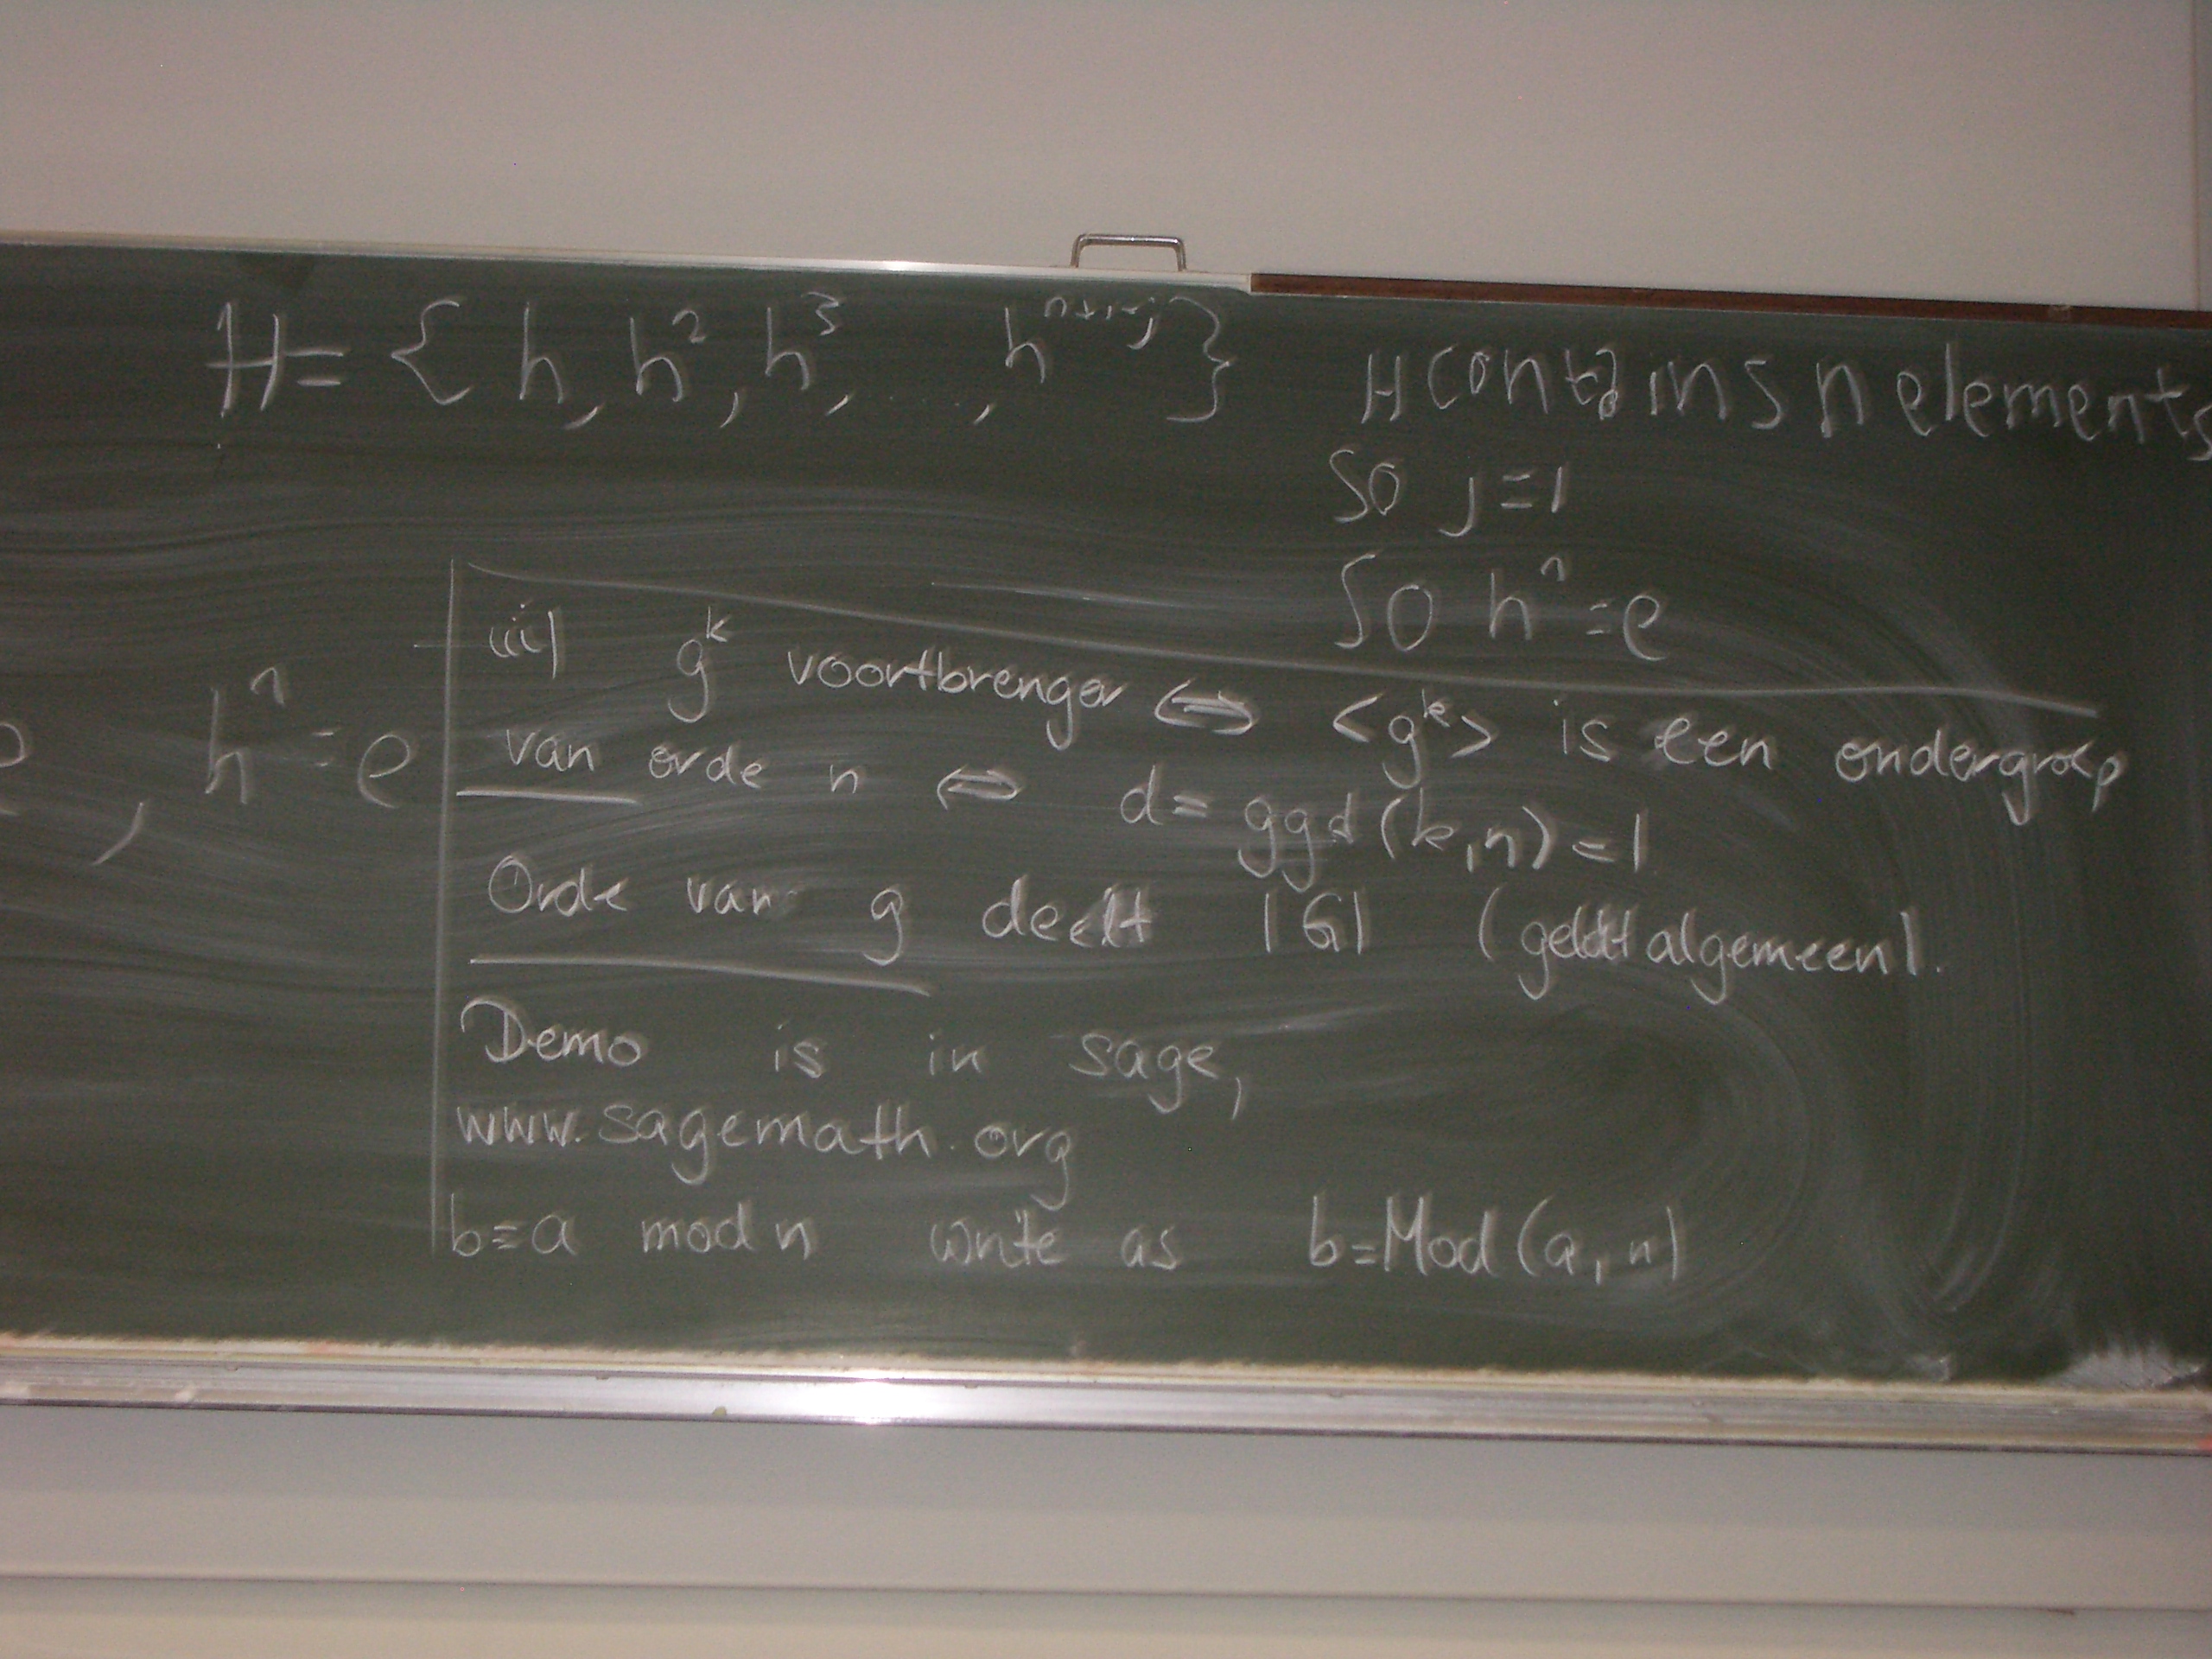 H = { h, h², h³, , hⁿ⁺¹⁻ʲ } H contains n elements
so j=1
So hⁿ=e
, hⁿ=e
iii) gᵏ voortbrenger ⇔ <gᵏ> is een ondergroep
van orde n ⇔ d = ggd(k,n)=1
Orde van g deelt |G| (geldt algemeen).
Demo is in sage,
www.sagemath.org
b≡a mod n write as b=Mod(a,n)